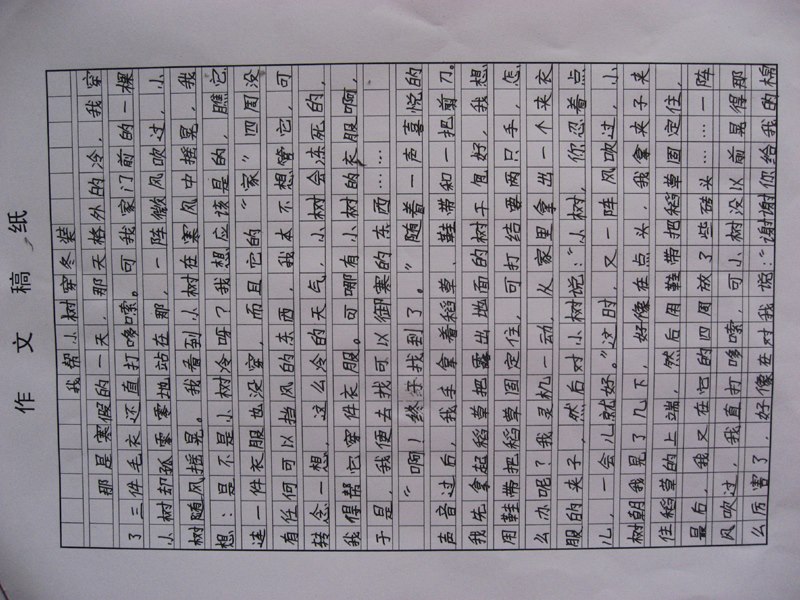 作文稿纸
我帮小树穿冬装
那是寒假的一天，那天格外的冷，我穿
了三件毛衣还直打哆嗦。可我家门前的一棵
小树却孤零零地站在那，一阵微风吹过，小
树随风摇晃。我看到小树在寒风中摇晃，我
想：是不是小树冷呀？我想应该是的，瞧它
连一件衣服也没穿，而且它的“家”四周没
有任何可以挡风的东西，我本不想管它，可
转念一想，这么冷的天气，小树会冻死的，
我得帮它穿件衣服。可哪有小树的衣服啊，
于是，我便去找可以御寒的东西……
“啊！终于找到了。”随着一声喜悦的
声音过后，我手拿着稻草、鞋带和一把剪刀。
我先拿起稻草把露出地面的树干包好，我想
用鞋带把稻草固定住，可打结要两只手，怎
么办呢？我灵机一动，从家里拿出一个夹衣
服的夹子，然后对小树说：“小树，你忍着点
儿，一会儿就好。”这时，又一阵风吹过，小
树朝我晃了几下，好像在点头，我拿夹子夹
住稻草的上端，然后用鞋带把稻草固定住，
最后，我又在它的四周放了些砖头……一阵
风吹过，我直打哆嗦，可小树没以前晃得那
么厉害了，好像在对我说：“谢谢你给我的棉